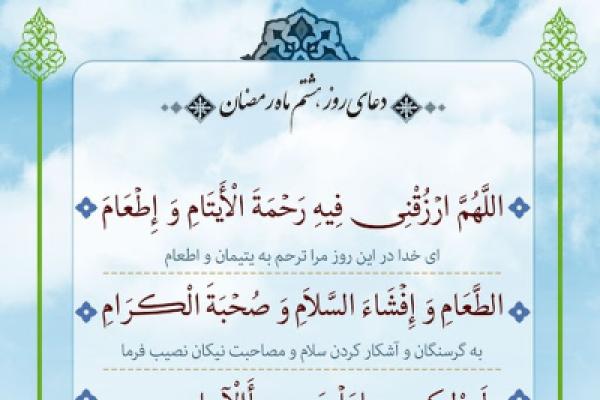 دعای روز هشتم ماه رمضان
اللَّهُمَّ ارْزُقْنِی فِیهِ رَحْمَةَ الْأَیتَامِ وَ إِطْعَامَ
ای خدا در این روز مرا ترحم به یتیمان و اطعام
الطَّعَامِ وَ إِفْشَاءَ السَّلاَمِ وَ صُحْبَةَ الْکرَامِ
به گرسنگان و آشکار کردن سلام و مصاحبت نیکان نصیب فرما